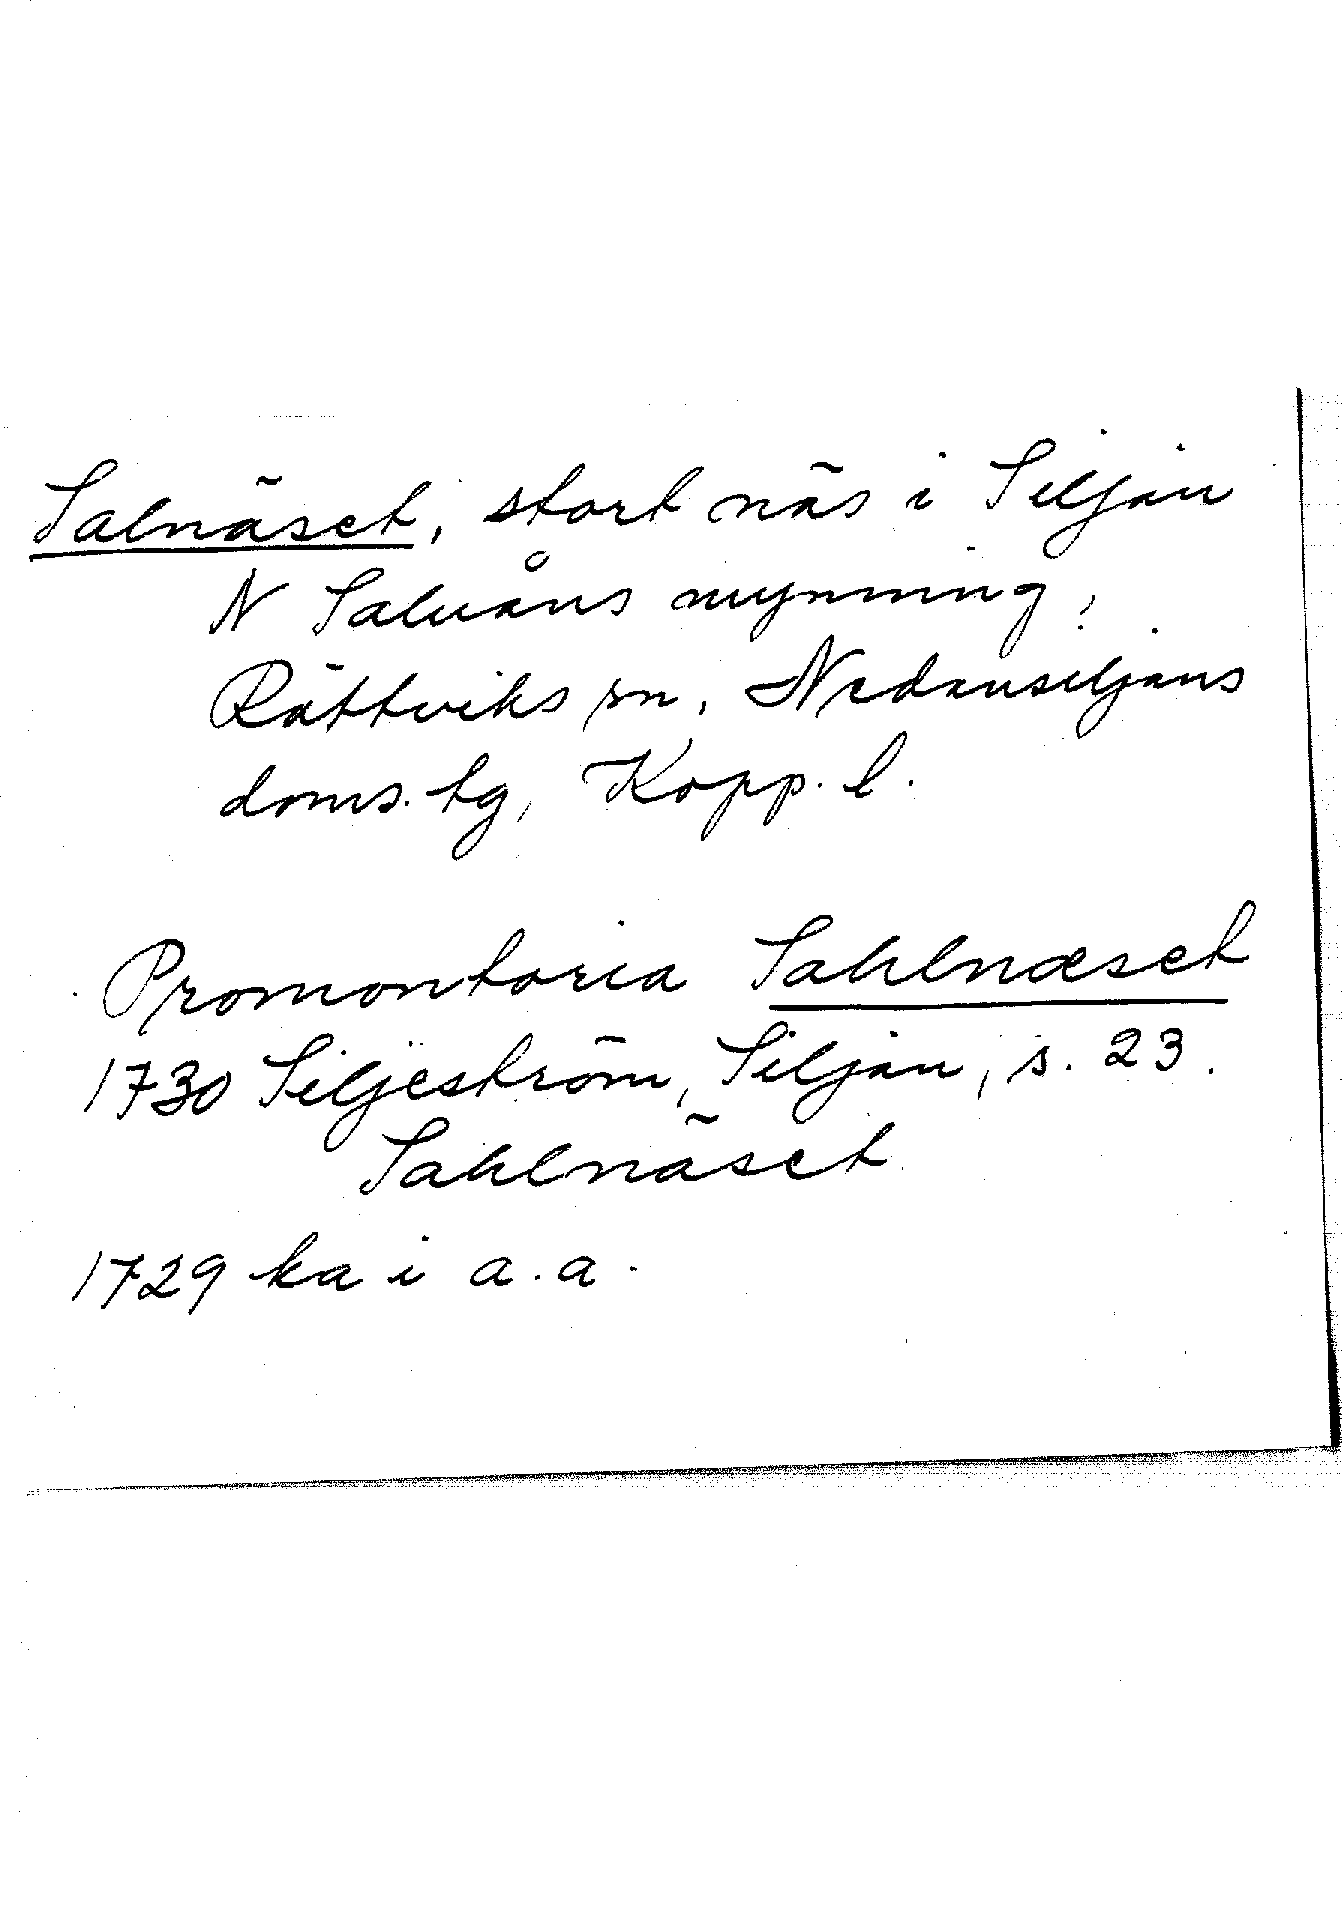 Salnäset, stort näs i Siljan
N Saluåns mynning,
Rättviks sn, Nedansiljans
doms. tg, Kopp. l.
Promontoria Sahlnæset
1730 Siljeström, Siljan, s. 23.
Sahlnäset
1729 ka i a.a.